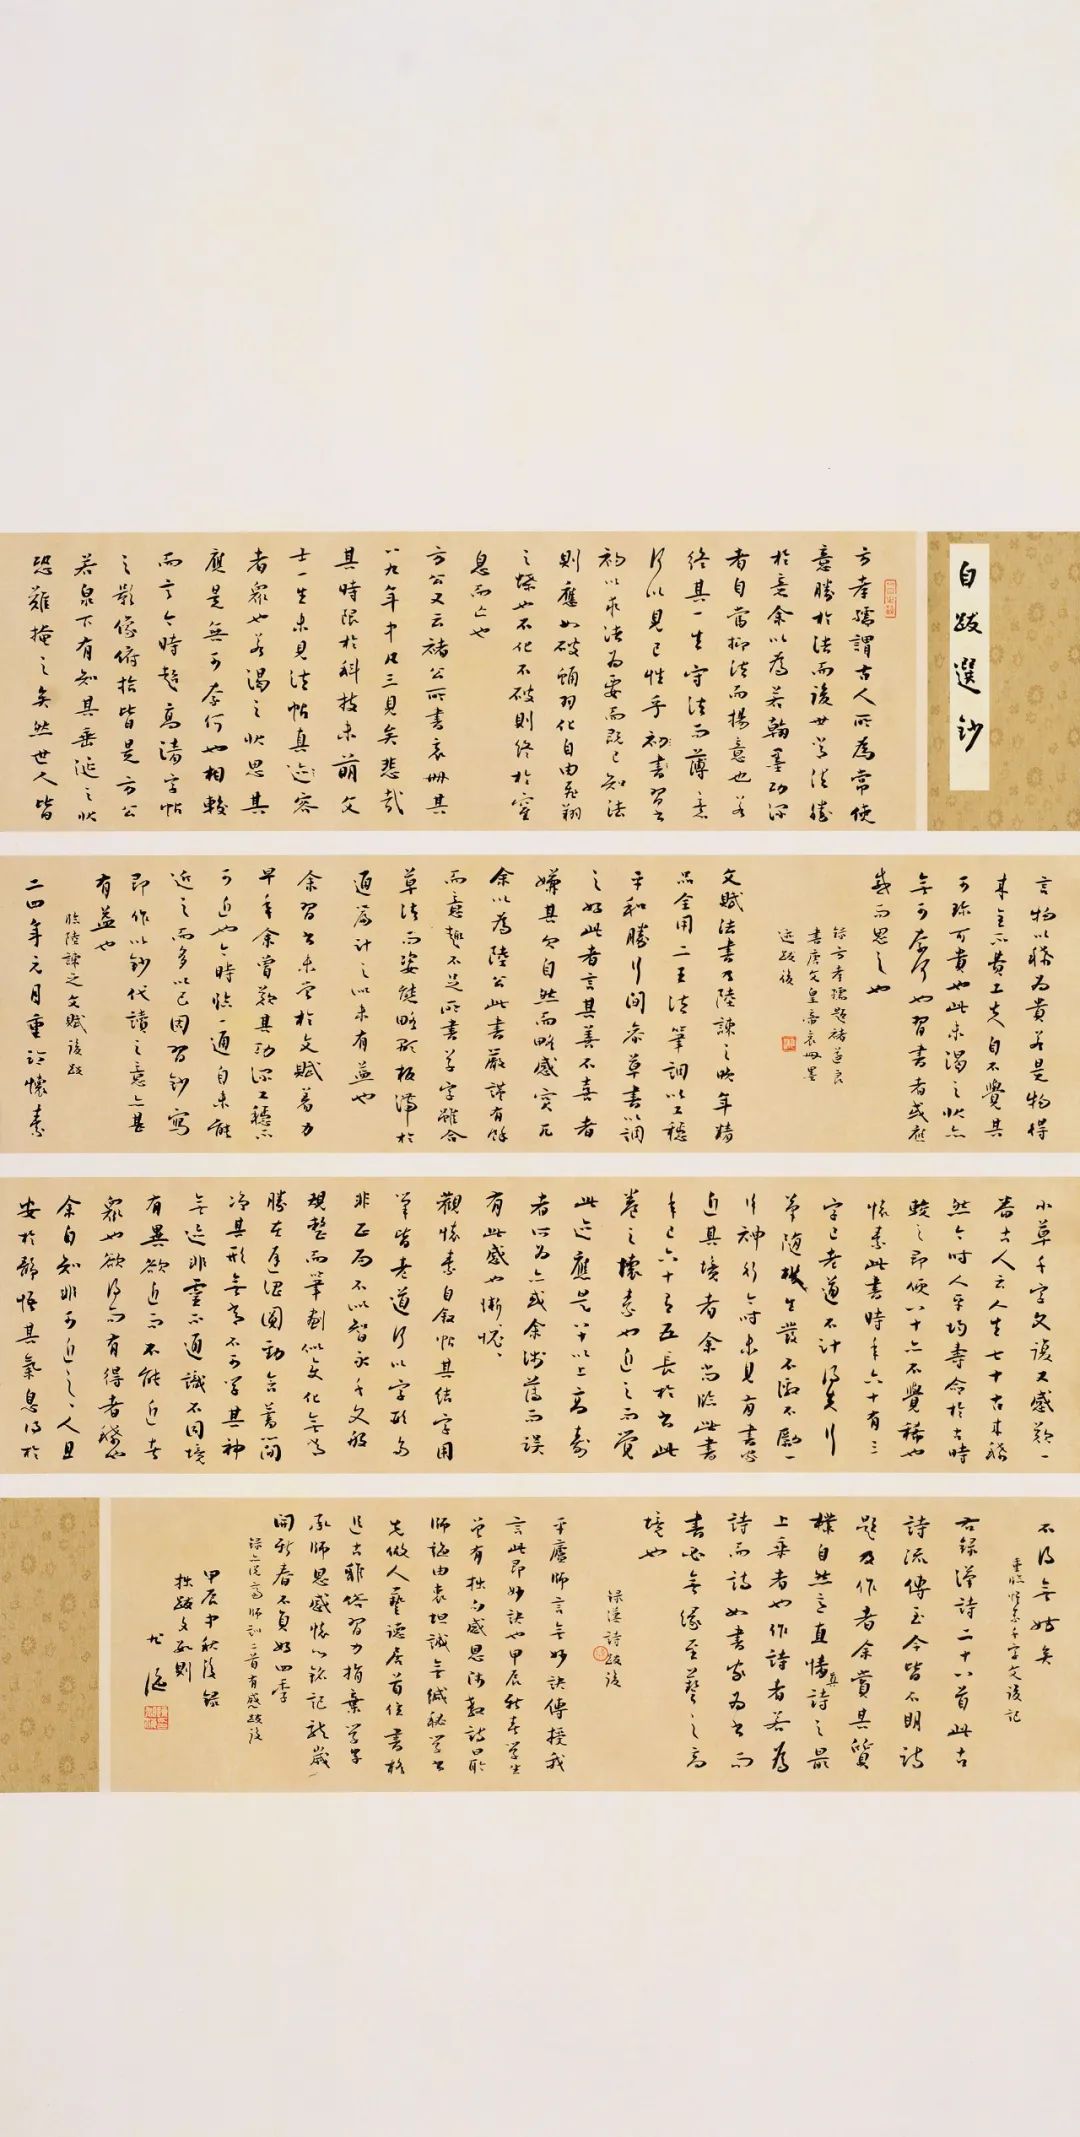 自跋選鈔
方孝孺謂古人所為常使
意勝於法而後世常法勝
於意余以為若翰墨功深
者自當抑法而揚意也若
終其一生守法而薄意
何以見己性乎初書習者
初以求法為要而既已知法
則應如破蛹羽化自由飛翔
之蝶也不化不破則終於窒
息而亡也
方公又云褚公所書哀冊其
八九年中凡三見矣悲哉
其時限於科技未萌文
士一生未見法帖真迹容
者眾也若渴之狀思其
應是無可奈何也相較
而言今時超高清字帖
之影像俯拾皆是方公
若泉下有知其垂涎之狀
恐難掩之矣然世人皆
言物以稀為貴若是物得
來全不費工夫自不覺其
可珍可貴也此未渴之狀亦
無可奈何也習書者或應
戒而思之也
錄方孝孺題褚遂良
書唐文皇帝哀冊墨
迹跋後
文賦法書乃陸諫之晚年精
品全用二王法筆調以工穩
平和勝行間參草書以調
之好此者言其善不喜者
嫌其欠自然而略感冗冗
余以為陸公此書嚴謹有餘
而意趣不足所書草字雖合
草法而姿態略形板滯於
通篇計之似未有益也
余習書未嘗於文賦着力
早年余嘗歎其功深工穩不
可近也今時臨一通自未能
近之而多以己因習鈔寫
即作以鈔代讀之意亦甚
有益也
臨陸諫之文賦後跋
二四年元月重臨懷素
小草千字文後又感歎一
番古人云人生七十古來稀
然今時人平均壽命於古時
較之即便八十亦不覺稀也
懷素此書時年六十有三
字已老邁不計得失行
筆隨機生發不激不勵一
行神行今時未見有書家
近其境者余尚臨此書
年已六十有五長於書此
卷之懷素也近之而覺
此迹應是八十以上高壽
者所為亦或余淺薄而誤
有此感也慚愧
觀懷素自敘帖其結字用
筆皆老道何以字形多
非正而不似智永千文般
規整而筆劃似變化無多
勝在遲澀圓勁含蓄簡
淨其形無常不可學其神
無迹非靈不通識不同境
有異欲近而不能近者
眾也欲得而有得者稀也
余自知非可近之人且
安於靜悟其氣息得於
不得無妨矣
重臨懷素千字文後記
右錄漢詩二十八首此古
詩流傳至今皆不明詩
題及作者余賞其質
樸自然之直情真詩之最
上乘者也作詩者若為
詩而詩如書家為書而
書必無緣至藝之高
境也
錄漢詩跋後
平廬師言無妙訣傳授我
言此即妙訣也甲辰新春學生
曾有拙句感恩湯教詩最
師論由衷坦誠無緘秘學書
先做人藝德居首位書格
追古雅俗習力指棄學子
承師恩感懷以銘記龍歲
開新春不負好四季
錄亦從高師訓二首有感跋後
甲辰中秋後錄
拙跋文數則